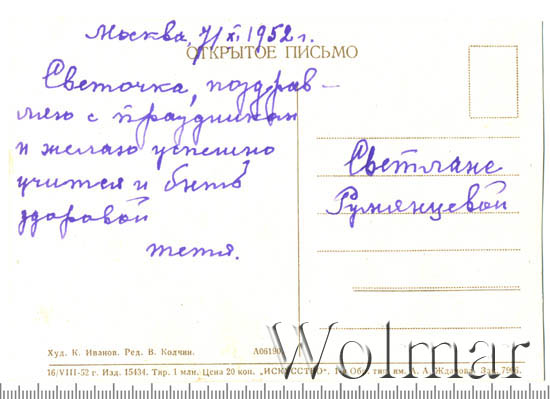 Москва, 7/XI 1952 г.
ОТКРЫТОЕ ПИСЬМО
Светочка, поздрав-
ляю с праздником
и желаю успешно
учится и быть
здоровой
тетя.
Светлане
Румянцевой
Худ. К. Иванов. Ред. В. Колчин. А06190
16/VIII-52 г. Изд. 15434. Тир. 1 млн. Цена 20 коп. „ИСКУССТВО“. 1-я Обр. тип. им. А. А. Жданова. Зак.
Wolmar